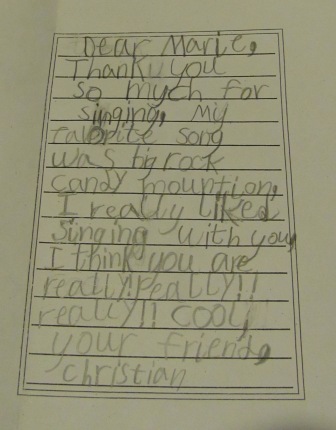 Dear Marie,
Thank you
so mych for
singing, My
favorite song
was big rock
candy mountion,
I really liked
singing with you,
I think you are
really!Really!!
really!! COOl,
your friend,
christian